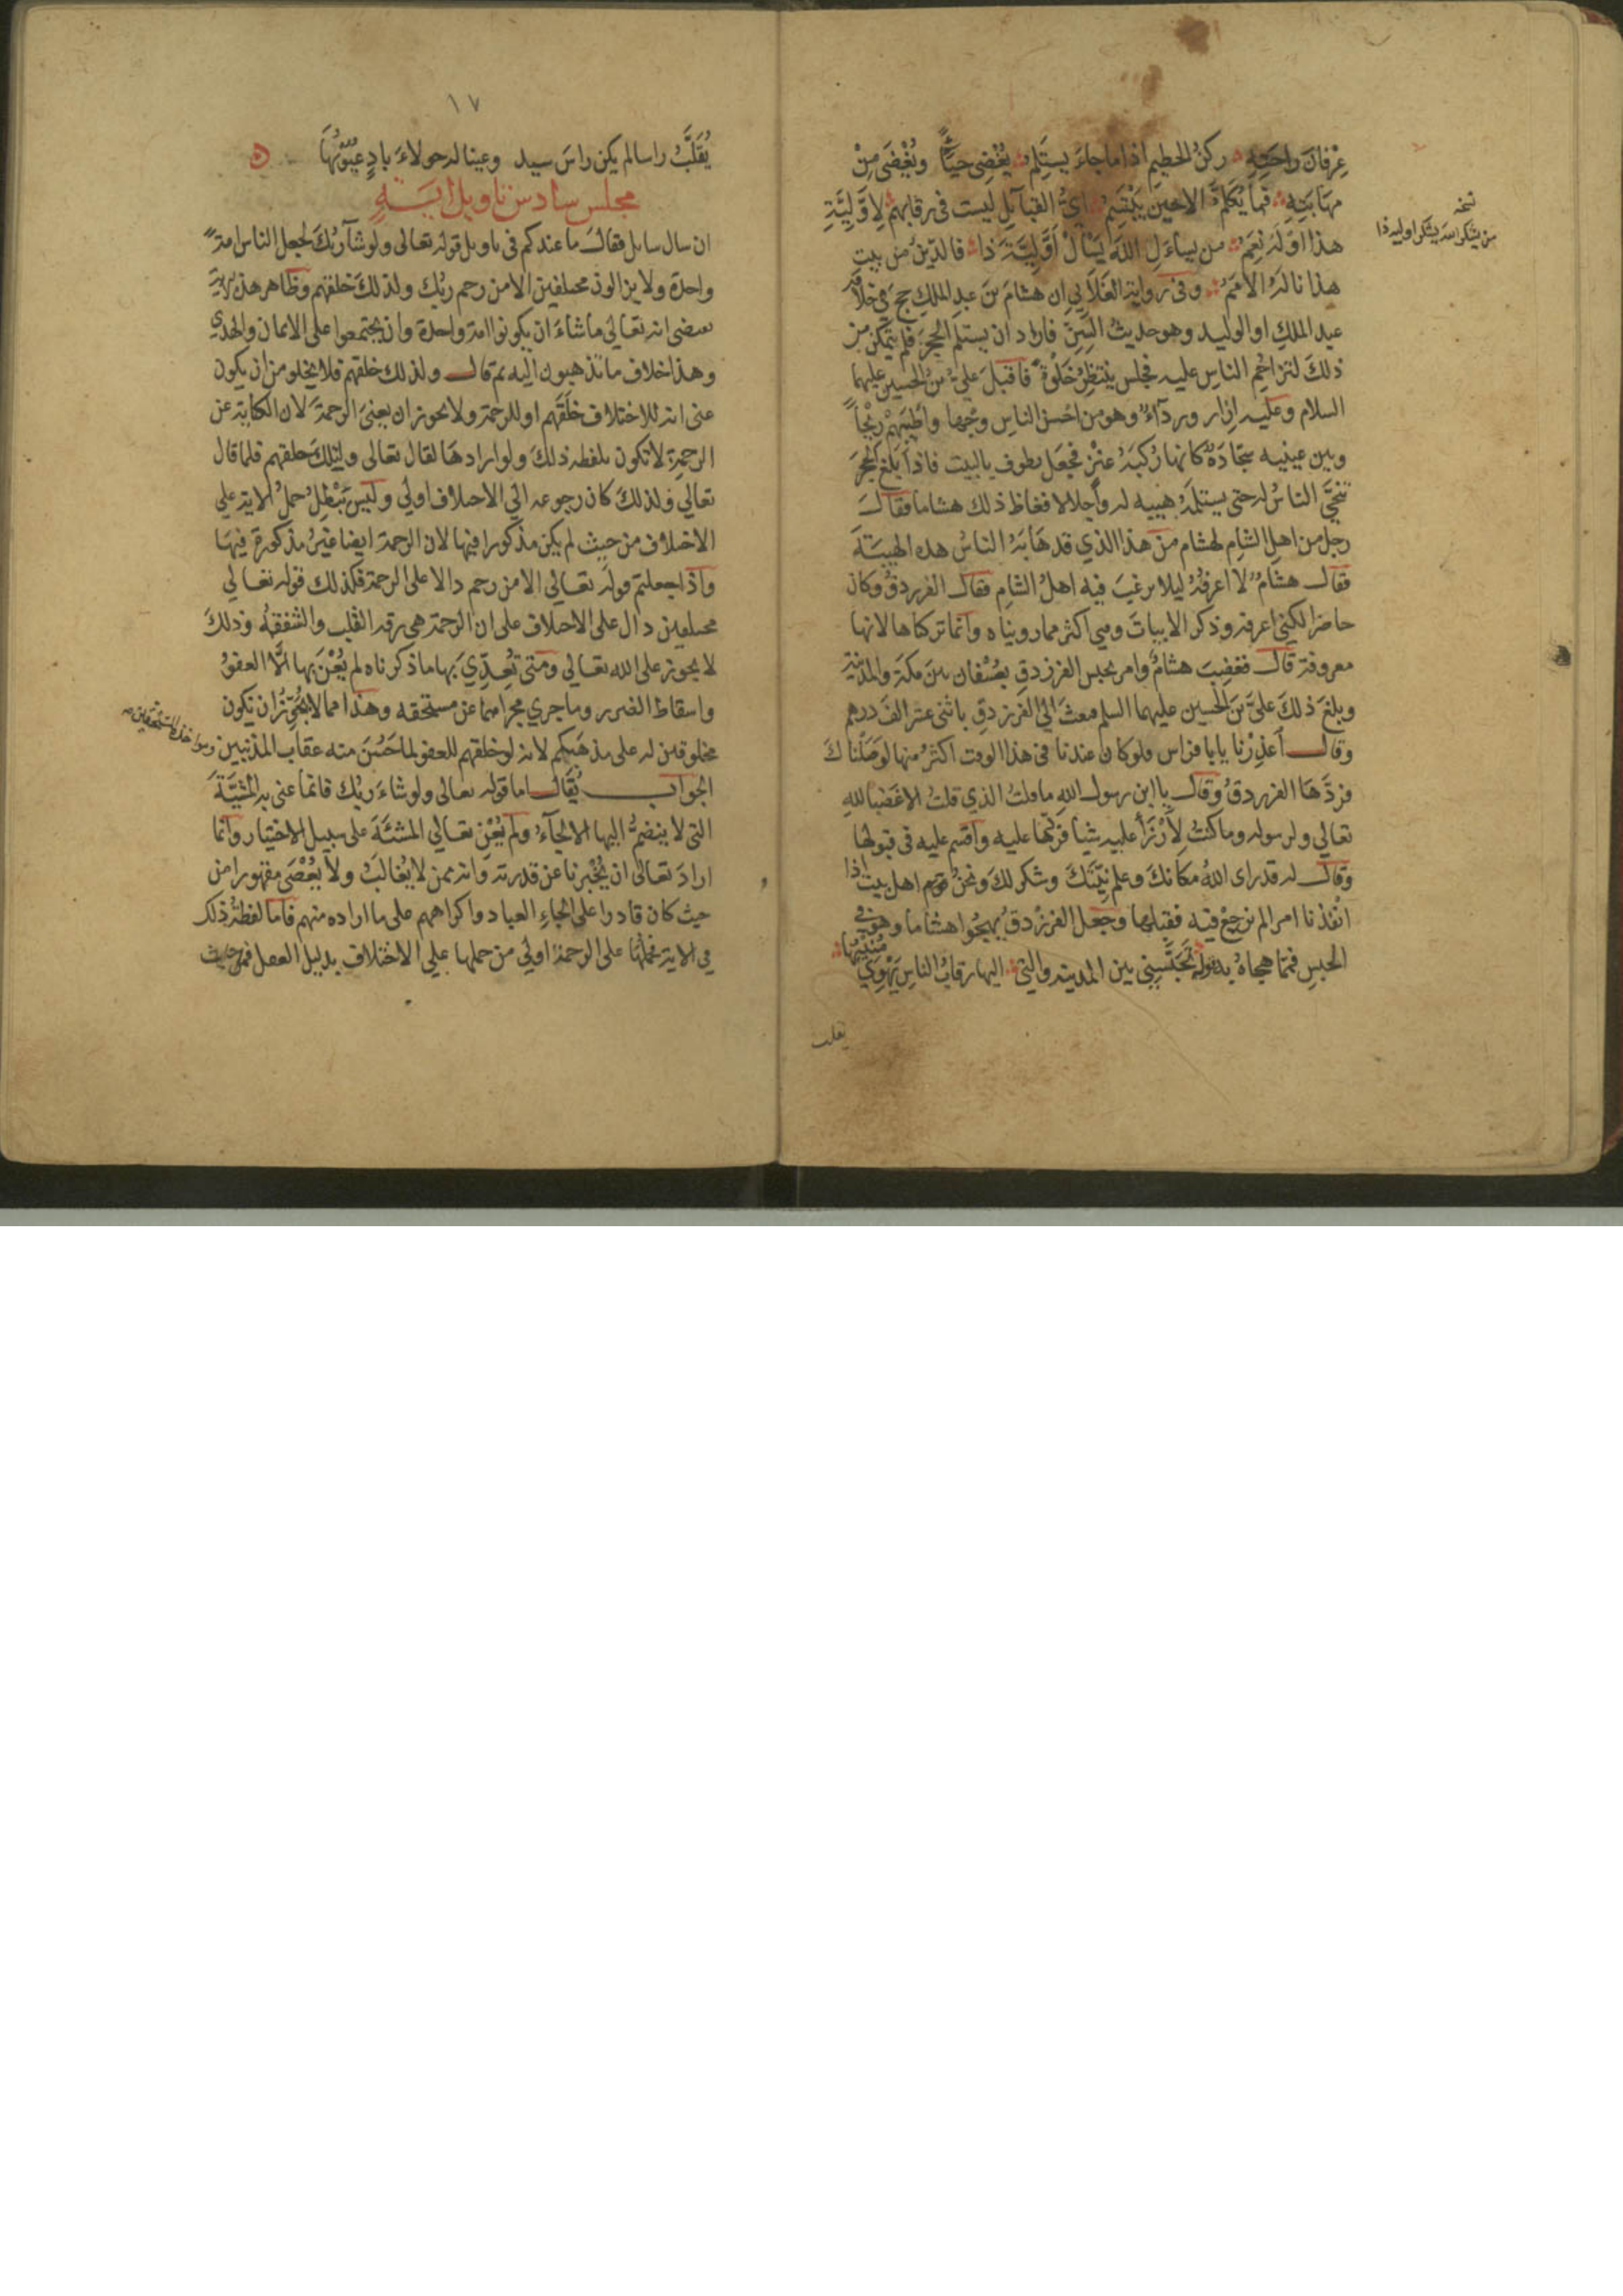 عِرْفانَ راحَتِهِ ركنُ الحطيمِ اذا ماجاءَ يستَلِمُ يُغْضِى حيَآءً ويُغْضَى مِنْ
مهَابَتِهِ فما يُكَلَّمُ الا حينَ يَبْتَسِمُ اىُّ القبآئِلِ ليست فى رقابهمُ لِاَوَّلِيَّةِ
هذا اوْ لَهُ نِعَمُ من يساءَلِ اللهَ يَسْأَلْ اَوَّلِيَّةَ ذا فالدّينُ من بيتِ
هذا نالَهُ الاُمَمُ وفى رواية الغَلَابِىِّ ان هشامَ بنَ عبدِ الملكِ حج فى خلافة
عبد الملكِ او الوليد وهو حديثُ السِنِّ فاراد ان يستلمَ الحجَرَ فلم يتمكن من
ذلكَ لتزاحُمِ الناسِ عليه فجلس ينتظِرُ خَلْوةً فاقبلَ علىُّ بنُ الحسين عليهما
السلام وعليه اِزار وردآءٌ وهو من احسنِ الناسِ وجْهًا واَطْيَبِهِمْ رِيْحاً
وبين عينيه سجّادَةٌ كانها رُكبَةُ عنْزٍ فجعَل يطوف بالبيت فاذا بلغَ الحجَرَ
تنحَّى الناسُ له حتى يستلمَهُ هيبةً له واجلالا فغاظ ذلك هشاما فقالَ
رجل من اهلِ الشامِ لهشام من هذا الذي قد هَابَهُ الناسُ هذه الهيبَةَ
فقال هشامٌ لا اعرفُهُ ليلا يرغبَ فيه اهلُ الشامِ فقال الفرزدقُ وكان
حاضرا لكني اعرفه وذكر الابياتَ وهي اكثر مما رويناه وانما تركناها لانها
معروفة قال فغضِبَ هشامٌ وامر بحبس الفرزدقِ بعُسْفان بين مكة والمدينةِ
وبلغَ ذلك علىَّ بنَ الحسين عليهما السلم فبعثَ الى الفرزدقِ باثنى عشر الفَ درهم
وقال اعْذِرْنا يا با فراس فلو كان عندنا فى هذا الوقت اكثرُ منها لوصَلْناكَ
فردَّهَا الفرزدقُ وقال يا ابن رسولِ اللهِ ما قلتُ الذي قلتُ الا غضَبا للهِ
تعالي ولرسوله وما كنتُ لِاَرْزَأَ عليه شيأ فردّها عليه واقسم عليه فى قبولها
وقال له قد راى اللهُ مكانكَ وعلم نِيّتَكَ وشكر لكَ ونحنُ قوم اهل بيت اذا
انْفَذنا امرا لم نرجعْ فيه فقبلها وجعل الفرزدقُ يهجُوا هشاما وهو فى
الحبسِ فمما هجاهُ به قوله تُحَبِّسُنِى بين المدينه والتي اليها رقابُ الناسِ يَهْوِي مُنِيْبُها
يقلب
نسخه
من يشكر الله يشكر اوليه ذا
١٧
يُقَلِّبُ راسا لم يكن راسَ سيد وعينا له حولاءَ بادٍ عيُوْبُهَا
مجلس سادس تاويل ايَـــةٍ
ان سال سايل فقالَ ما عندكم فى تاويل قوله تعالى ولو شآ ربُّكَ لجعل الناس امةً
واحدة ولا يزالون مختلفين الا من رحم ربُّك ولذلكَ خلقهم وظاهر هذه الآيةِ
يقتضى انه تعالي ما شاءَ ان يكونوا امة واحدة وان يجتمعوا على الايمان والهُدي
وهذا خلاف ما تذهبون اليه ثم قال ولذلك خلقهم فلا يخلو من ان يكون
عنى انه للاختلاف خلَقَهم او للرحمة ولا يجوز ان يعنىَ الرحمةَ لان الكناية عن
الرحمة لا تكون بلفظة ذلكَ ولو ارادهَا لقال تعالى ولتلك خلقهم فلما قال
تعالي ولذلكَ كان رجوعه الي الاختلاف اولي وليس يَبْطُلُ حملُ الايةِ علي
الاختلاف من حيث لم يكن مذكورا فيها لان الرحمة ايضا غيرُ مذكورة فيهَا
واذا جعلتم قوله تعالي الا من رحم دالا على الرحمة فكذلك قوله تعالي
مختلفين دال على الاختلاف على ان الرحمة هي رقة القلب والشفقةُ وذلكَ
لا يجوز على الله تعالي ومتى تُعِدِّيَ بها ما ذكرناه لم يُعْنَ بها الَّا العفوُ
واسقاط الضرر وما جري مجراهما عن مستحقه وهذا مما لا يجُوْزُ ان تكون
مخلوقين له على مذهَبكم لانه لو خلقهم للعفو لما حَسُنَ منه عقاب المذنبين ومواخذة المستحقين صح
الجواب يُقَال اما قوله تعالى ولو شاءَ ربُّك فانما عنى به المشيَّةَ
التى لا ينضمُّ اليها الالجآءُ ولم يُعْنِ تعالي المشئَةَ على سبيل الاختيار وانما
ارادَ تعالى ان يُخْبرنا عن قدرته وانه ممن لا يُغالَبُ ولا يُعْصَى مقهورا من
حيث كان قادرا على الجاءِ العباد واكراههم على ما اراده منهم فاما لفظةُ ذلك
في الاية فحملُها على الرحمة اولي من حملها علي الاختلاف بدليل العقل فمن حيث